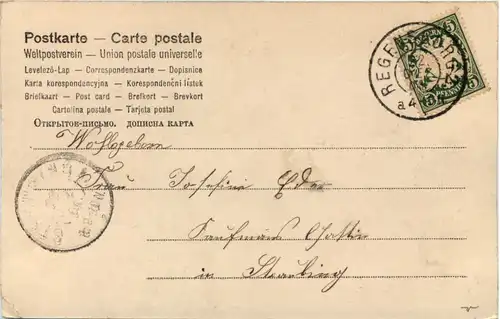 Postkarte — Carte postale
Weltpostverein — Union postale universelle
Levelező-Lap — Correspondenzkarte — Dopisnice
Karta korespondencyjna — Korespondenční lístek
Briefkaart — Post card — Brefkort — Brevkort
Cartolina postale — Tarjeta postal
Открытое-письмо. дописна карта
REGENSBURG
5 5
PFENNIG
Wohlgeborn
Frau Josefine Eder
Kaufmanns Gattin
in Straubing